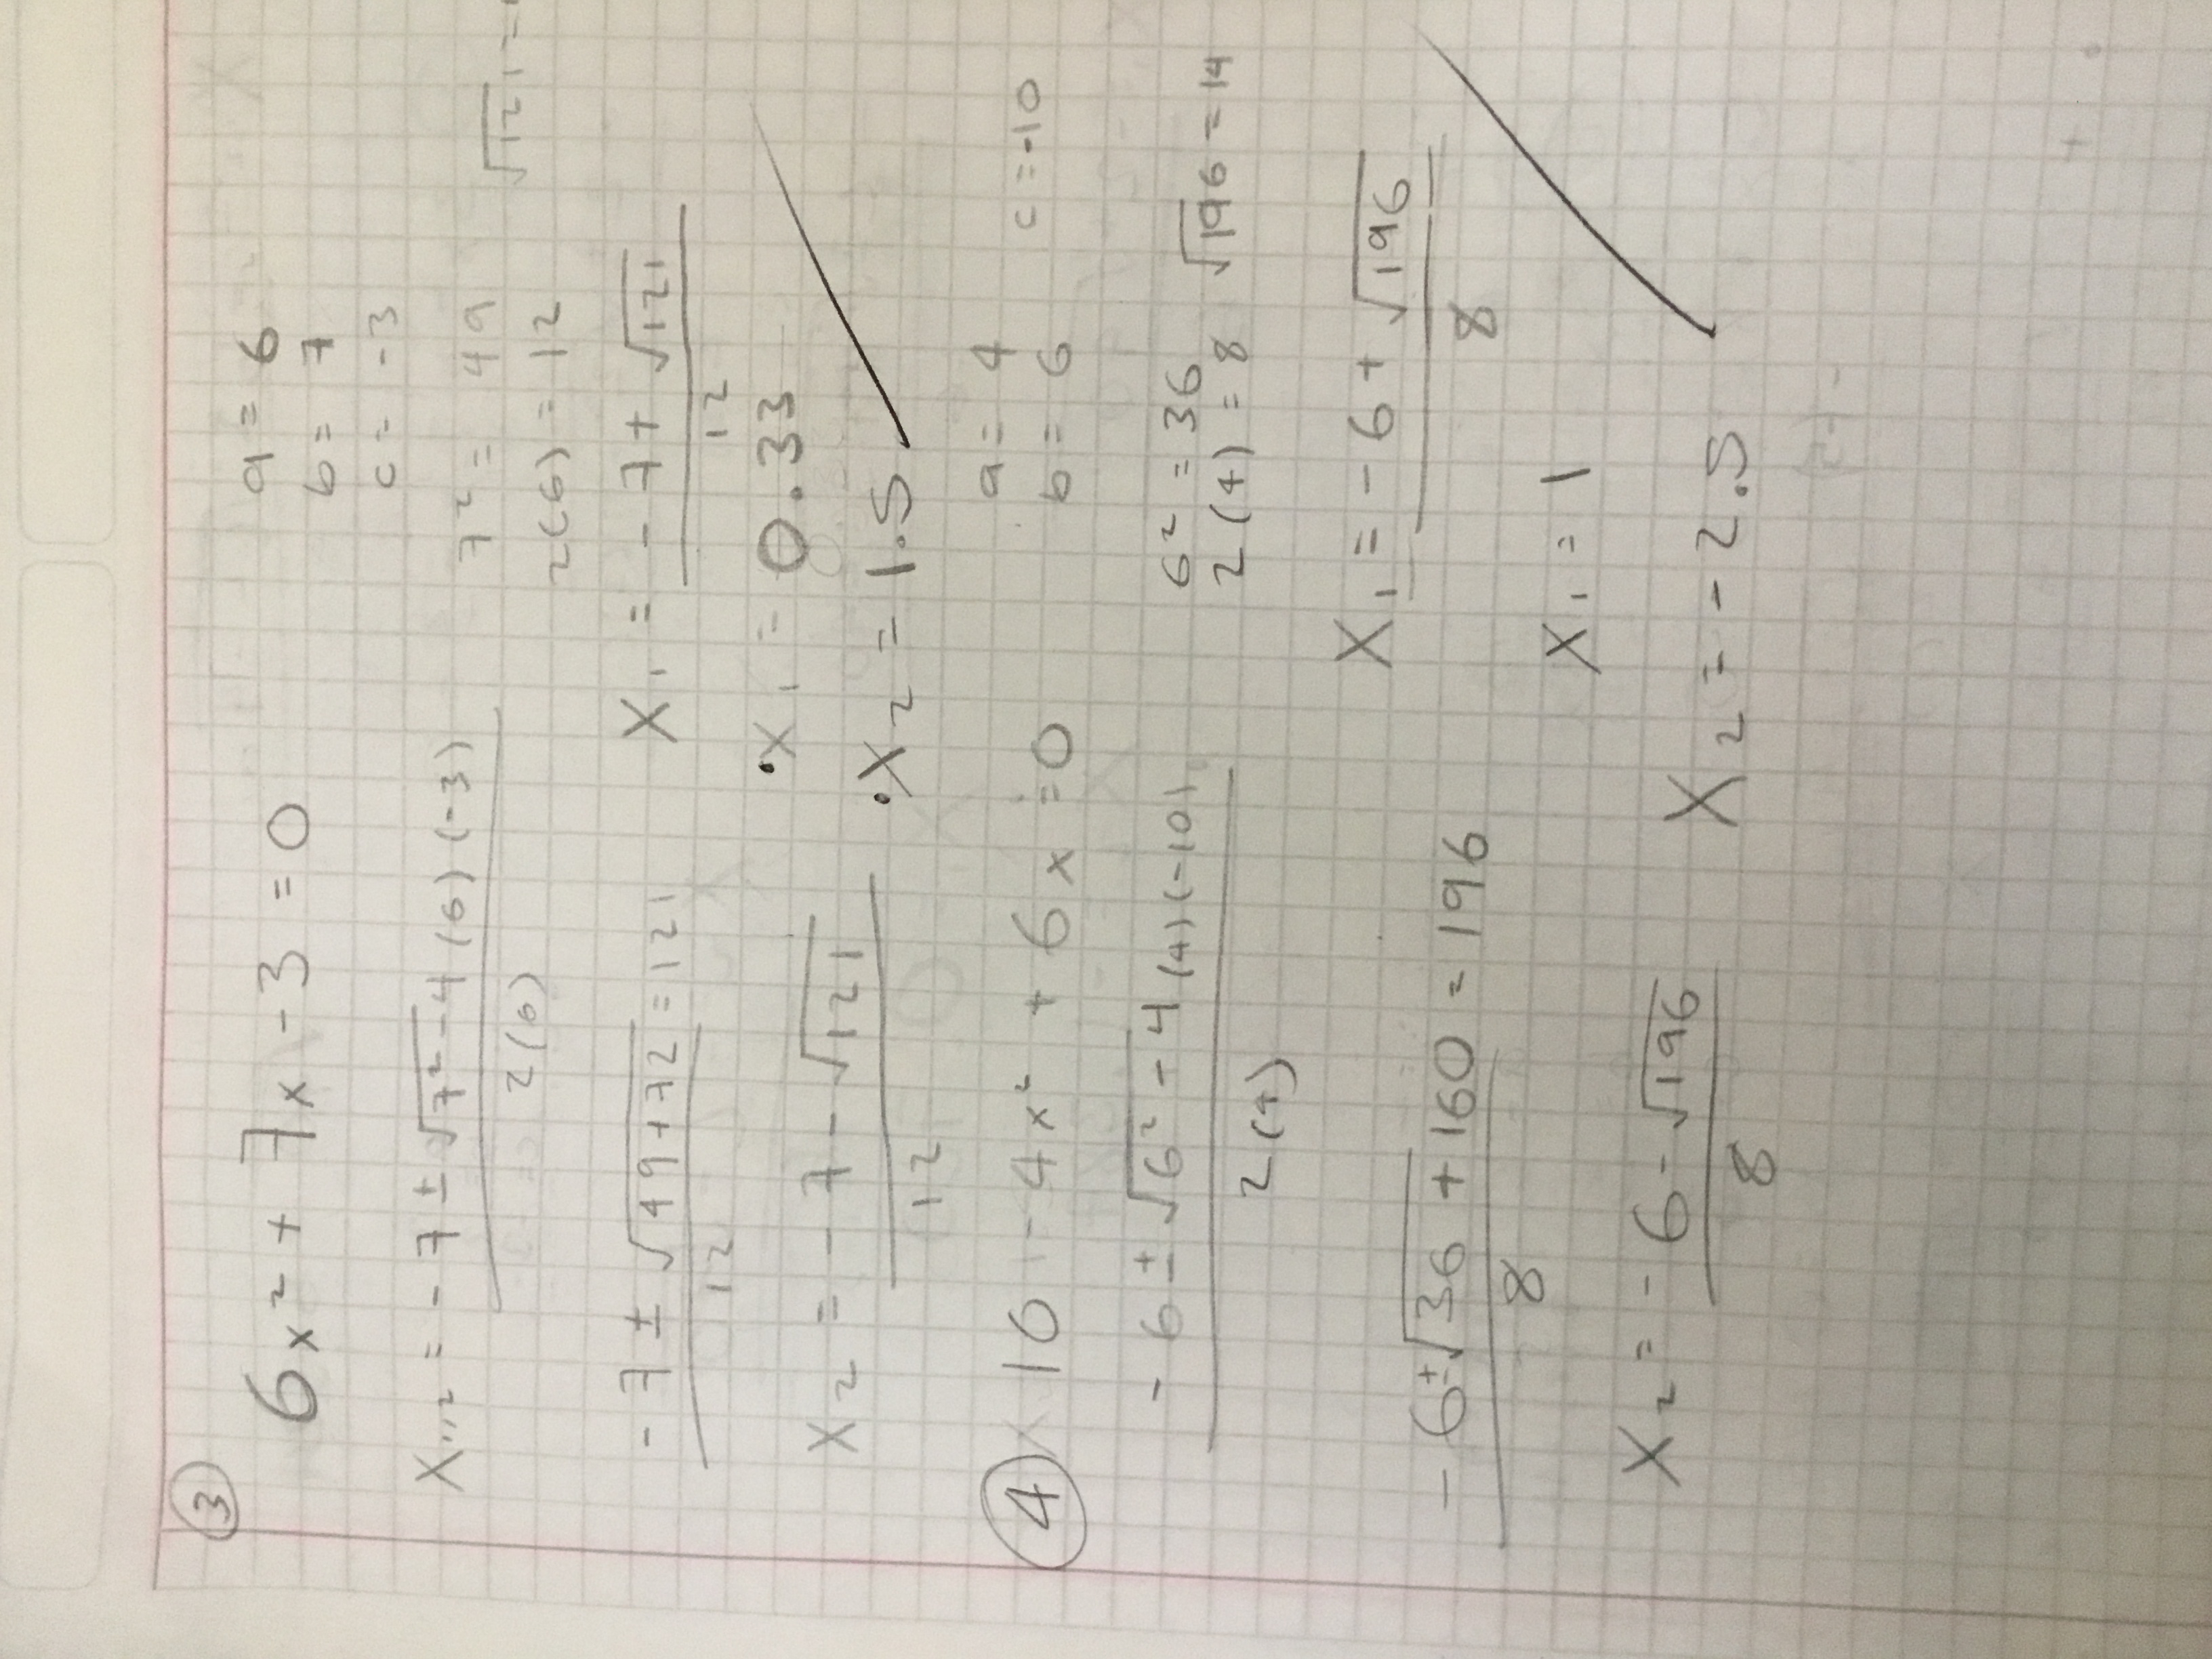 ③
6x² + 7x - 3 = 0
a = 6
b = 7
c = -3
X₁,₂ = -7 ± √7² - 4 (6) (-3)
2(6)
7² = 49
2(6) = 12
√121 =
-7 ± √49+72 = 121
12
X₁ = -7 + √121
12
X₂ = -7 - √121
12
•X₁ = 0.33
•X₂ = 1.5
④
10 - 4x² + 6x = 0
a = 4
b = 6
c = -10
-6 ± √6² - 4 (4) (-10)
2(4)
6² = 36
2(4) = 8
√196 = 14
-6 ± √36 + 160 = 196
8
X₁ = -6 + √196
8
X₁ = 1
X₂ = -6 - √196
8
X₂ = -2.5